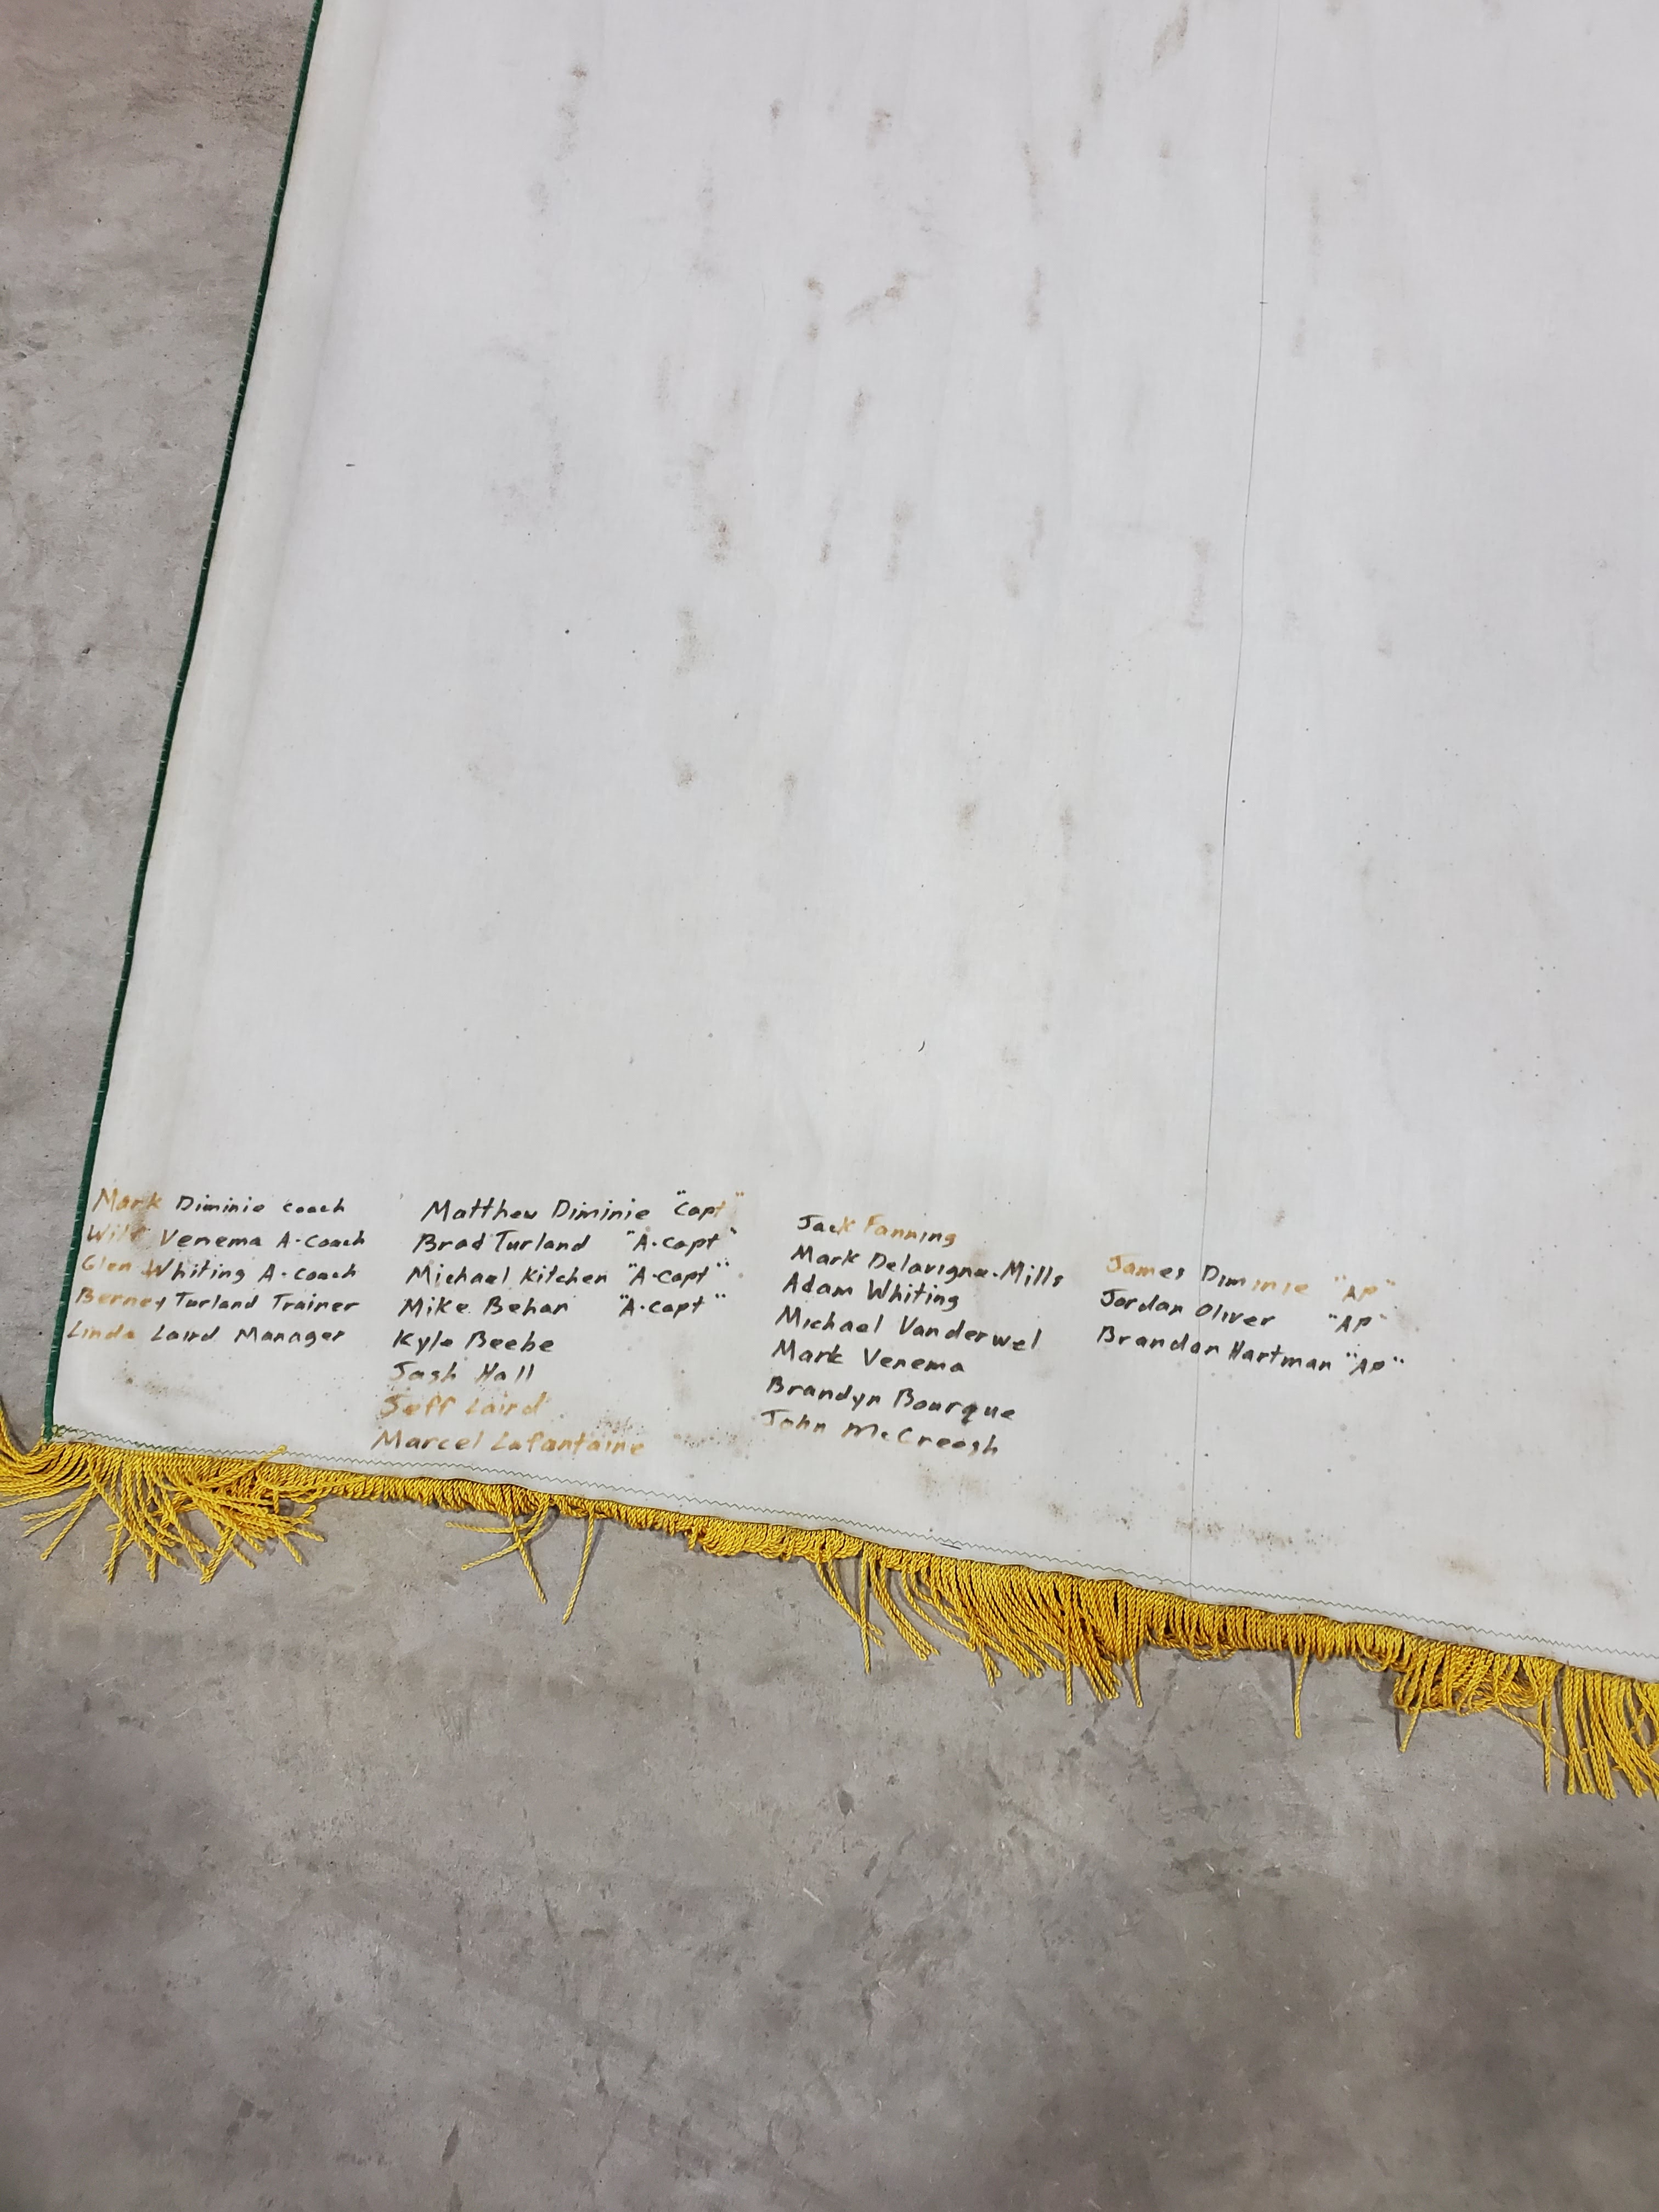 Mark Diminie coach
Wilf Venema A-coach
Glen Whiting A-coach
Berney Turland Trainer
Linda Laird Manager
Matthew Diminie "Capt"
Brad Turland "A-capt"
Michael Kitchen "A-capt"
Mike Behan "A-capt"
Kyle Beebe
Josh Hall
Jeff Laird
Marcel Lafantaine
Jack Fanning
Mark Delavigne-Mills
Adam Whiting
Michael Vanderwel
Mark Venema
Brandyn Bourque
John McCreash
James Diminie "AP"
Jordan Oliver "AP"
Brandon Hartman "AP"